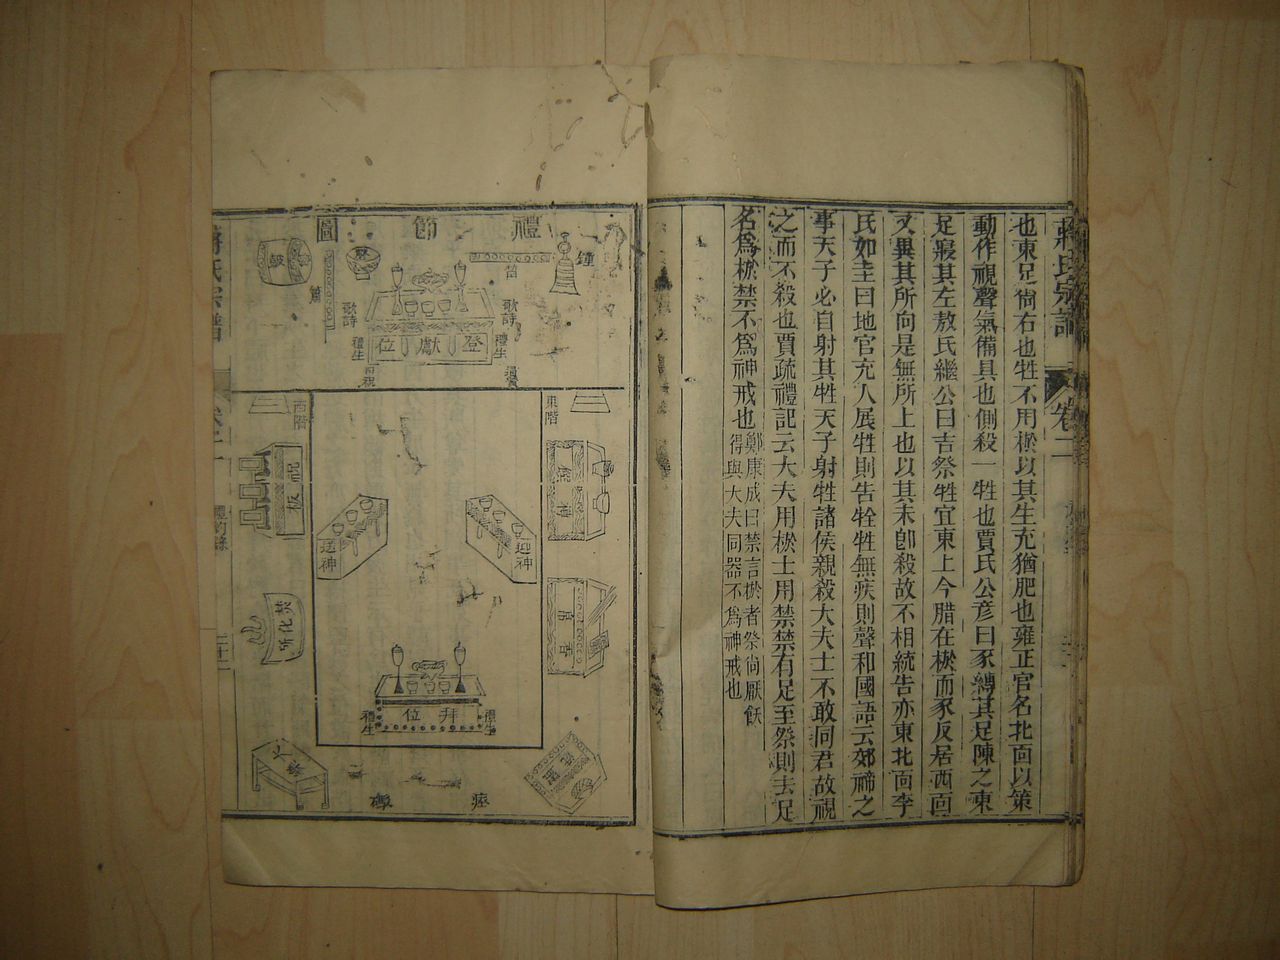 蔣氏宗譜 卷二
也東足尙右也牲不用棜以其生充猶肥也雍正官名北面以策
動作視聲氣備具也側殺一牲也賈氏公彦曰豕縛其足陳之東
足寢其左敖氏繼公曰吉祭牲宜東上今腊在棜而豕反居西面
又異其所向是無所上也以其未卽殺故不相統告亦東北面李
氏如圭曰地官充人展牲則告牷牲無疾則聲和國語云郊禘之
事天子必自射其牲天子射牲諸侯親殺大夫士不敢同君故視
之而不殺也賈疏禮記云大夫用棜士用禁禁有足至祭則去足
名爲棜禁不爲神戒也
鄭康成曰禁言棜者祭尙厭飫
得與大夫同器不爲神戒也
禮節圖
鐘
笛
歌詩
歌詩
鼓
禮生
禮生
登獻位
東階
西階
迎神
送神
祝板
焚化所
禮生
拜位
禮生
盥洗
氏宗譜